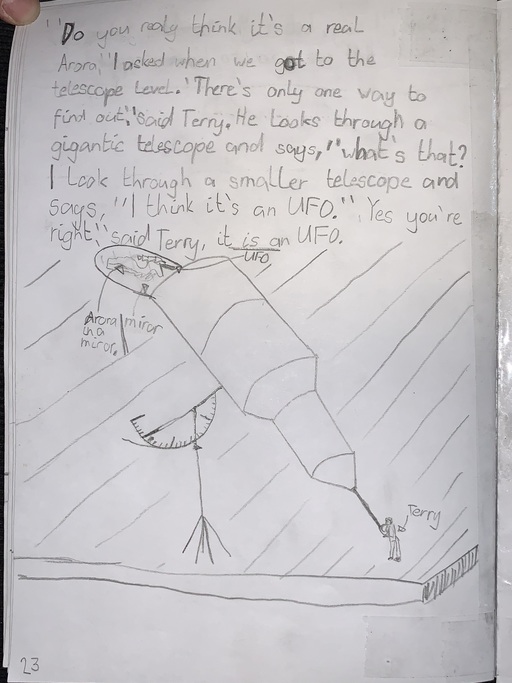 "Do you realy think it's a real
Arora,' I asked when we got to the
telescope level. 'There's only one way to
find out.' said Terry. He looks through a
gigantic telescope and says, "what's that?
I look through a smaller telescope and
says, "I think it's an UFO." Yes you're
right," said Terry, it is an UFO.
UFO
Arora
in a
miror.
miror
Terry
23